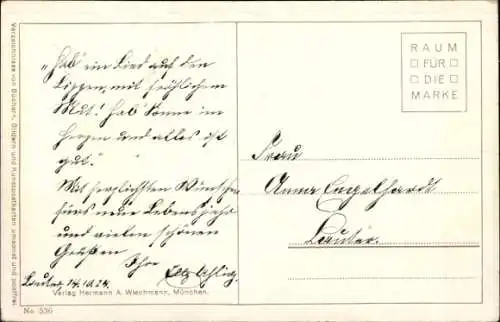 „Hab' ein Lied auf den
Lippen, mit fröhlichem
Mut! Hab' Sonne im
Herzen und alles ist
gut."
Mit herzlichsten Wünschen
fürs neue Lebensjahr
und vielen schönen
Grüßen
Ihre
Lauter, 14.10.24.
Verlag Hermann A. Wiechmann, München.
No. 530
Verzeichnisse von Büchern, Bildern und Kunstpostkarten umsonst und postfrei.
RAUM
FÜR
DIE
MARKE
Frau
Anna Engelhardt
Lauter.